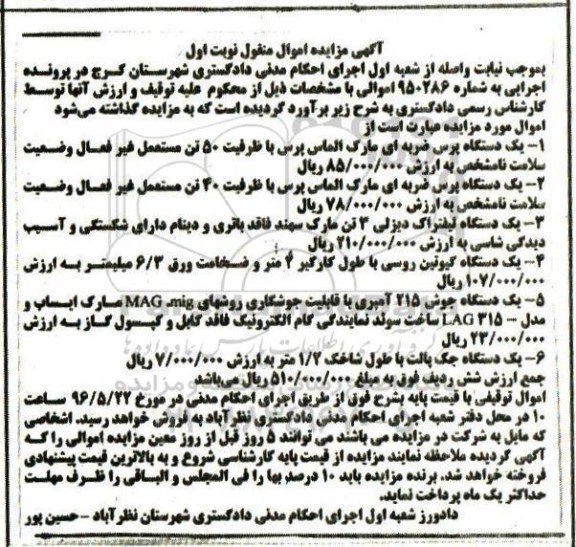 آگهی مزایده اموال منقول نوبت اول
بموجب نیابت واصله از شعبه اول اجرای احکام مدنی دادگستری شهرستان کرج در پرونده
اجرایی به شماره ۹۵۰۲۸۶ اموالی با مشخصات ذیل از محکوم علیه توقیف و ارزش آنها توسط
کارشناس رسمی دادگستری به شرح زیر برآورد گردیده است که به مزایده گذاشته می‌شود
اموال مورد مزایده عبارت است از
۱- یک دستگاه پرس ضربه ای مارک الماس پرس با ظرفیت ۵۰ تن مستعمل غیر فعال وضعیت
سلامت نامشخص به ارزش ۸۵/۰۰۰/۰۰۰ ریال
۲- یک دستگاه پرس ضربه ای مارک الماس پرس با ظرفیت ۴۰ تن مستعمل غیر فعال وضعیت
سلامت نامشخص به ارزش ۷۸/۰۰۰/۰۰۰ ریال
۳- یک دستگاه لیفتراک دیزلی ۳ تن مارک سهند فاقد باتری و دینام دارای شکستگی و آسیب
دیدگی شاسی به ارزش ۲۱۰/۰۰۰/۰۰۰ ریال
۴- یک دستگاه گیوتین روسی با طول کارگیر ۲ متر و ضخامت ورق ۶/۳ میلیمتر به ارزش
۱۰۷/۰۰۰/۰۰۰ ریال
۵- یک دستگاه جوش ۲۱۵ آمپری با قابلیت جوشکاری روشهای MAG ،mig مارک ایساب و
مدل - LAG ۳۱۵ ساخت سوئد نمایندگی گام الکترونیک فاقد کابل و کپسول گاز به ارزش
۲۳/۰۰۰/۰۰۰ ریال
۶- یک دستگاه جک پالت با طول شاخک ۱/۲ متر به ارزش ۷/۰۰۰/۰۰۰ ریال
جمع ارزش شش ردیف فوق به مبلغ ۵۱۰/۰۰۰/۰۰۰ ریال می‌باشد
اموال توقیفی با قیمت پایه بشرح فوق از طریق اجرای احکام مدنی در مورخ ۹۶/۵/۲۲ ساعت
۱۰ در محل دفتر شعبه اجرای احکام مدنی دادگستری نظرآباد به فروش خواهد رسید. اشخاصی
که مایل به شرکت در مزایده می باشند می توانند ۵ روز قبل از روز معین مزایده اموالی را که
آگهی گردیده ملاحظه نمایند مزایده از قیمت پایه کارشناسی شروع و به بالاترین قیمت پیشنهادی
فروخته خواهد شد. برنده مزایده باید ۱۰ درصد بها را فی المجلس و الباقی را ظرف مهلت
حداکثر یک ماه پرداخت نماید.
دادورز شعبه اول اجرای احکام مدنی دادگستری شهرستان نظرآباد - حسین پور